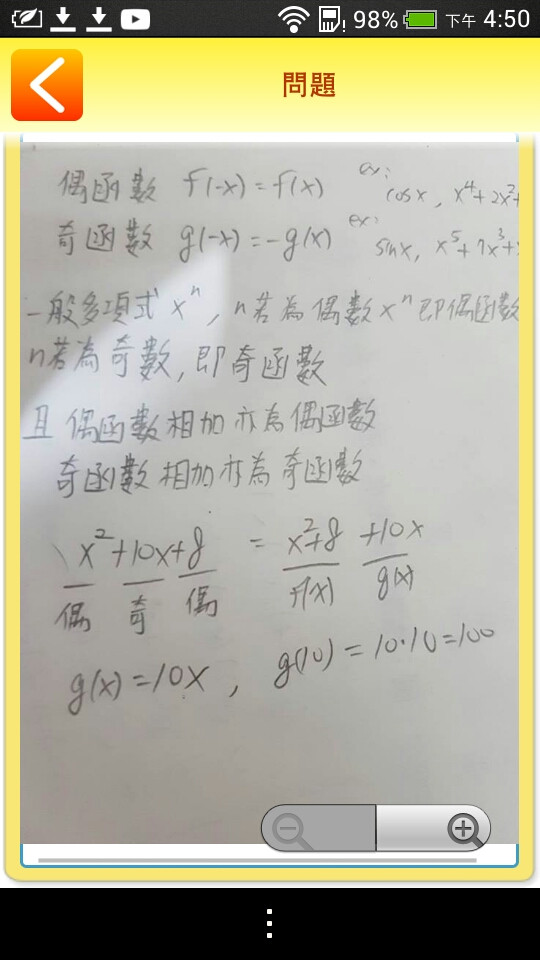 98% 下午 4:50
問題
偶函數 f(-x) = f(x) ex: cosx, x⁴+2x²+
奇函數 g(-x) = -g(x) ex: sinx, x⁵+7x³+
一般多項式 xⁿ, n若為偶數 xⁿ 即偶函數
n若為奇數, 即奇函數
且 偶函數相加亦為偶函數
奇函數相加亦為奇函數
x²+10x+8 = x²+8 +10x
偶 奇 偶 f(x) g(x)
g(x)=10x, g(10)=10·10=100